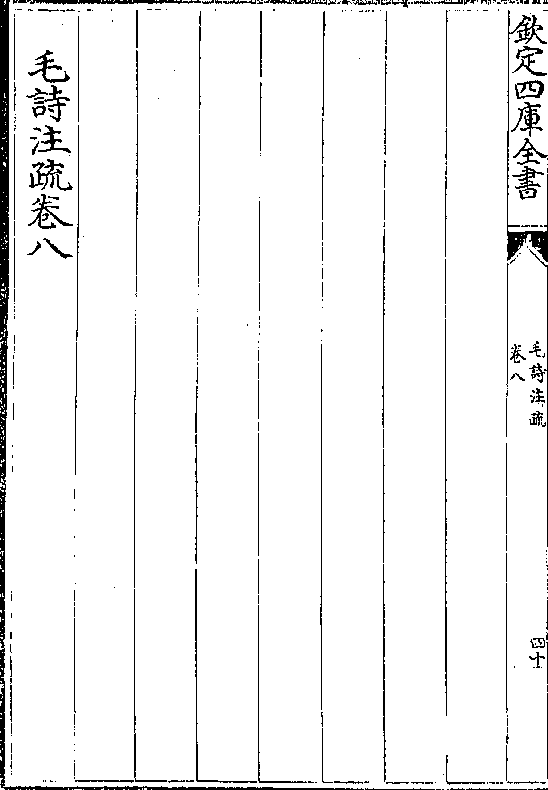 欽定四庫全書
毛詩注疏
卷八
四十
毛詩注疏卷八